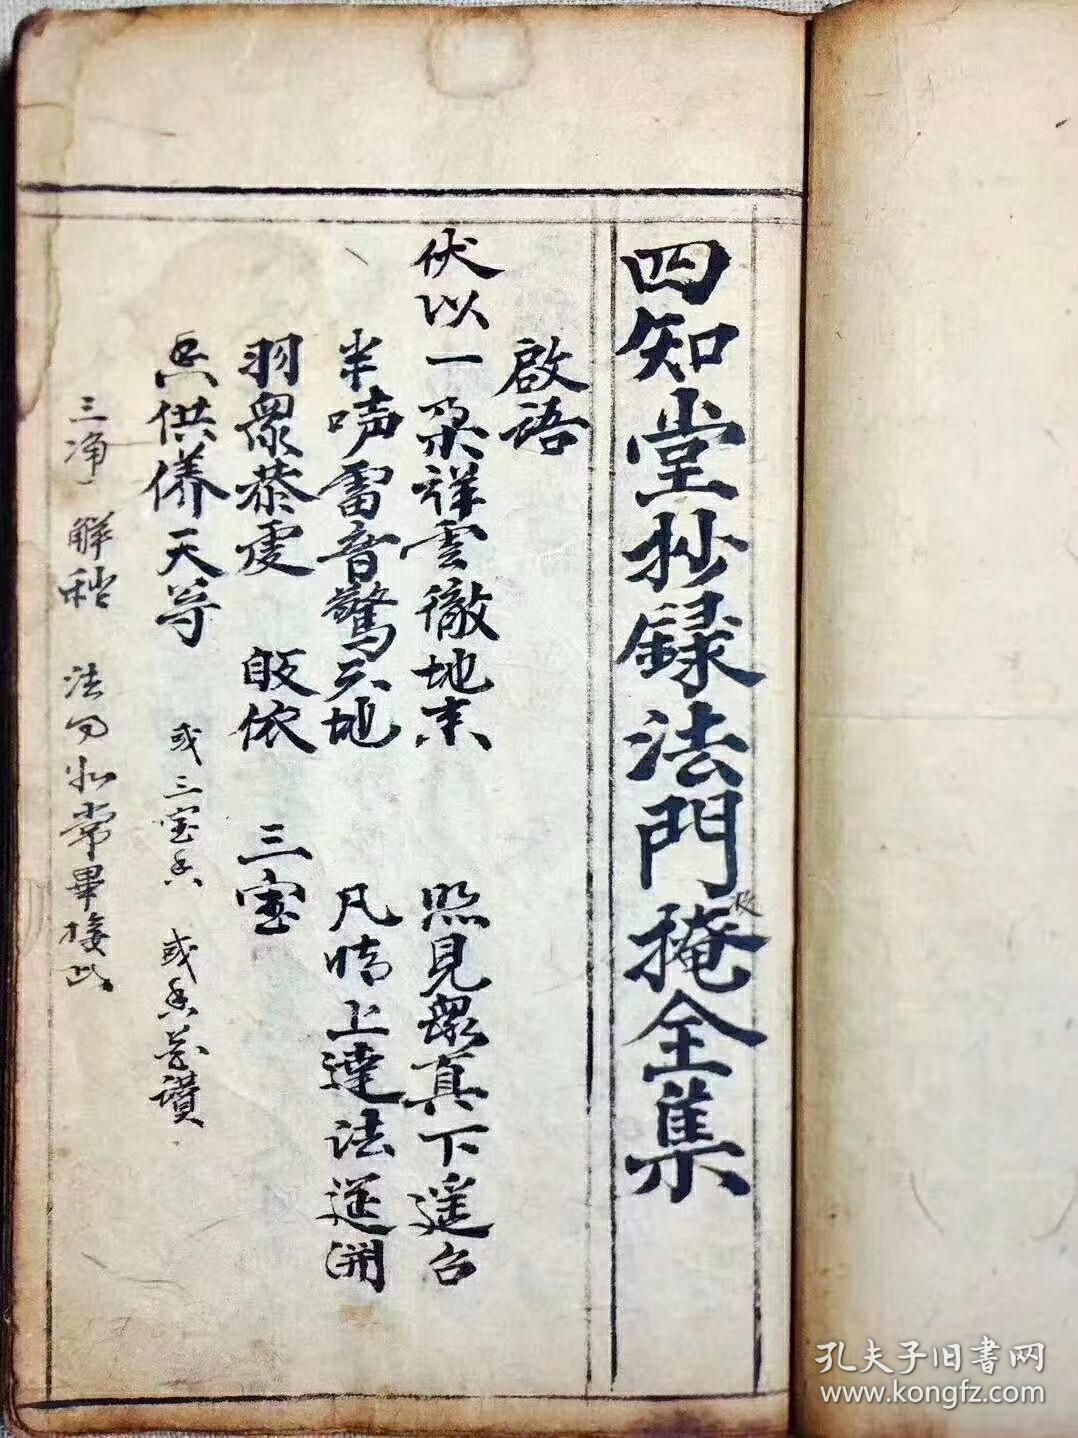 四知堂抄錄法門掩全集
及
啟語
伏以一朶祥雲徹地來 照見眾真下遥台
半声雷音驚天地 凡情上達法筵開
羽眾恭虔 皈依 三宝
香供養天尊 或三宝香 或香花讚
三净 解秽 法事如常畢接此
孔夫子旧書网
www.kongfz.com